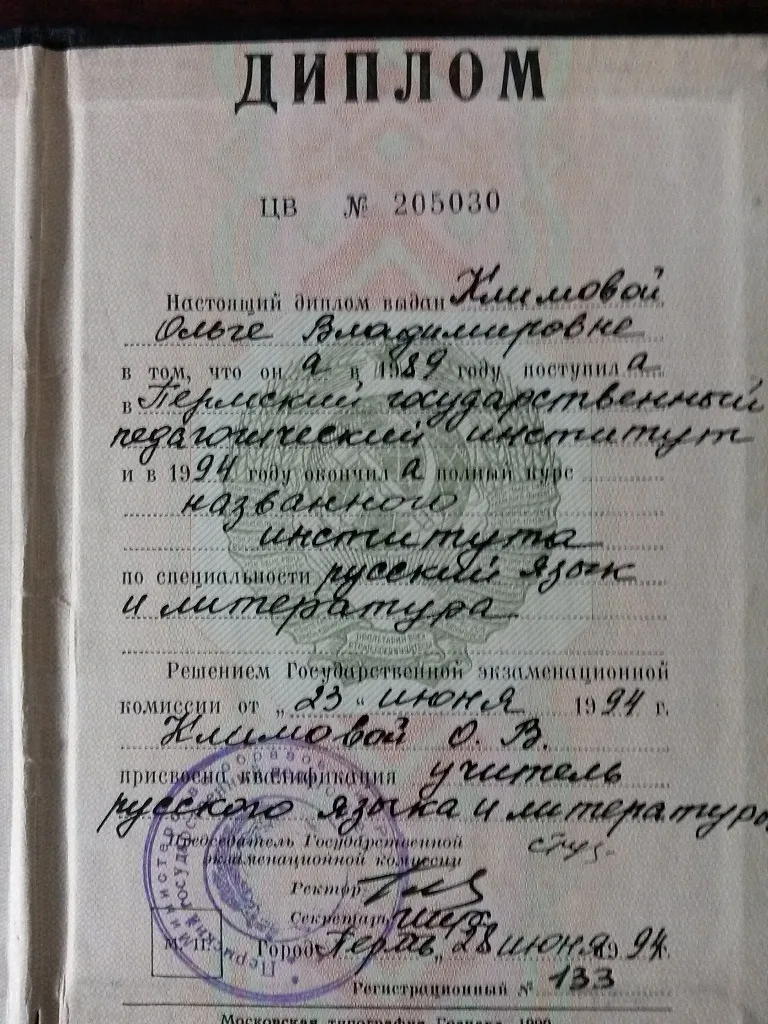 ДИПЛОМ
ЦВ № 205030
Настоящий диплом выдан Климовой
Ольге Владимировне
в том, что он а в 1989 году поступил а
в Пермский государственный
педагогический институт
и в 1994 году окончил а полный курс
названного
института
по специальности русский язык
и литература
Решением Государственной экзаменационной
комиссии от „23“ июня 1994 г.
Климовой О. В.
присвоена квалификация учитель
русского языка и литературы
Председатель Государственной
экзаменационной комиссии
Ректор
Секретарь
М. П. Город Пермь „28 июня 1994 г.
Регистрационный № 133
Московская типография Гознака. 1990